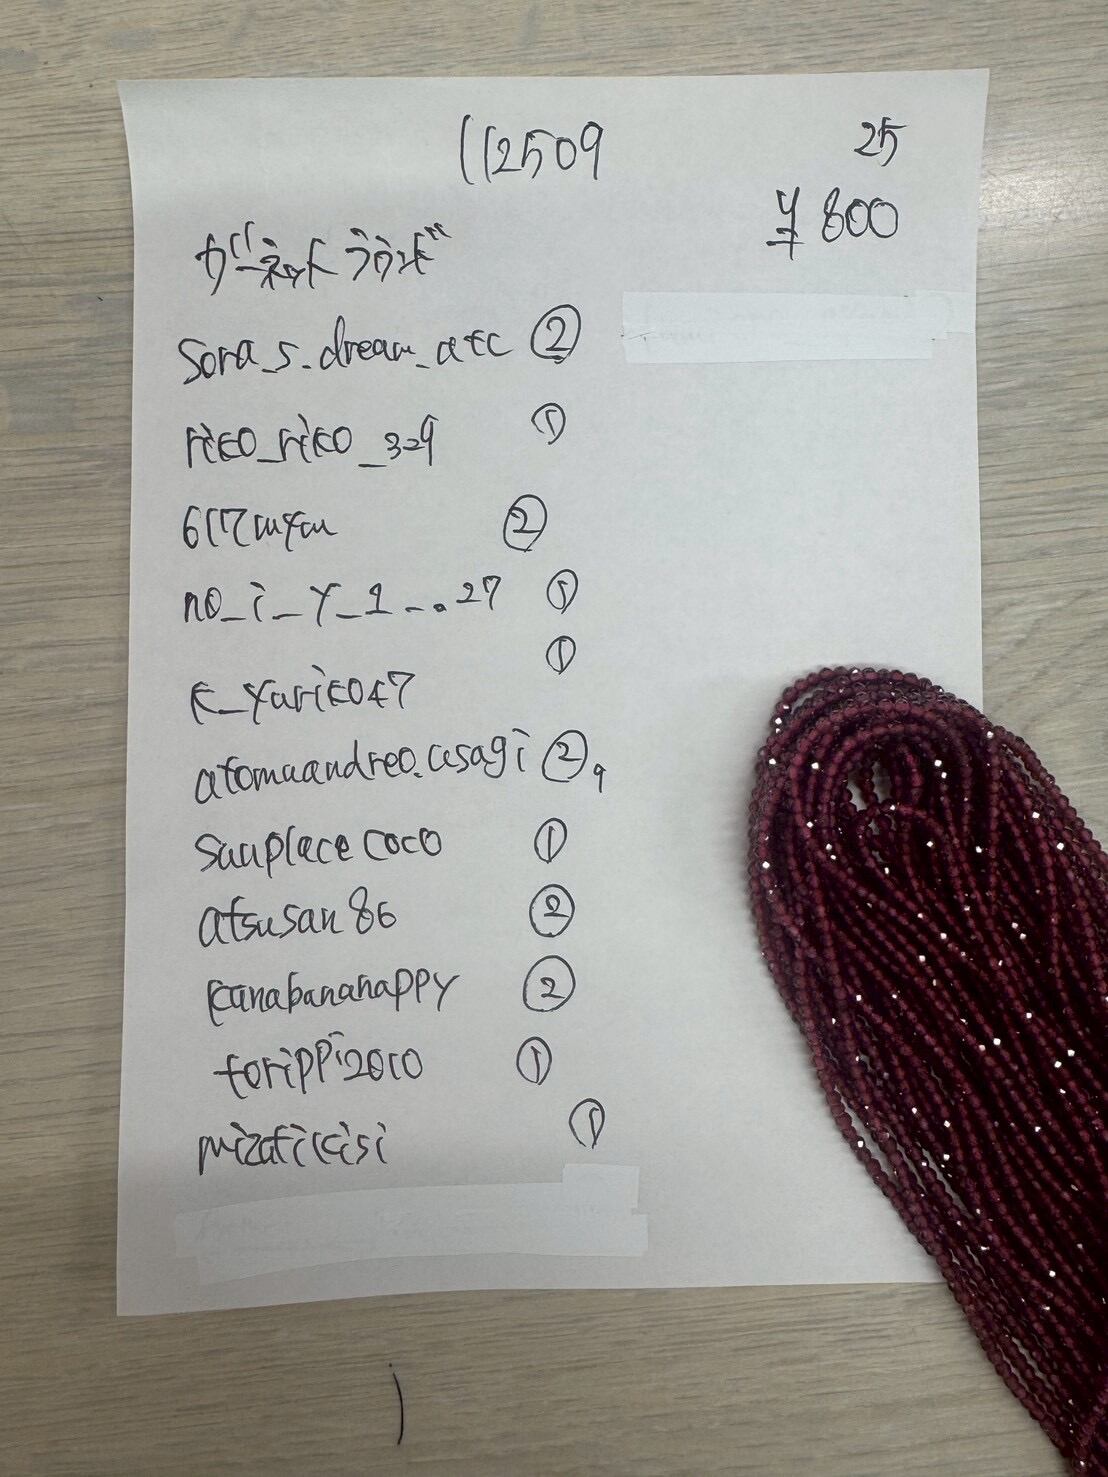 112509
25
¥800
ガーネットラウンド
sora_s.dream_atc ②
riko_riko_329 ①
617mym ②
no_i_y_1_.27 ①
k_yuriko47 ①
atomuandreo.usagi ②
sunplacecoco ①
atsusan86 ②
kanabananappy ②
torippi2010 ①
①